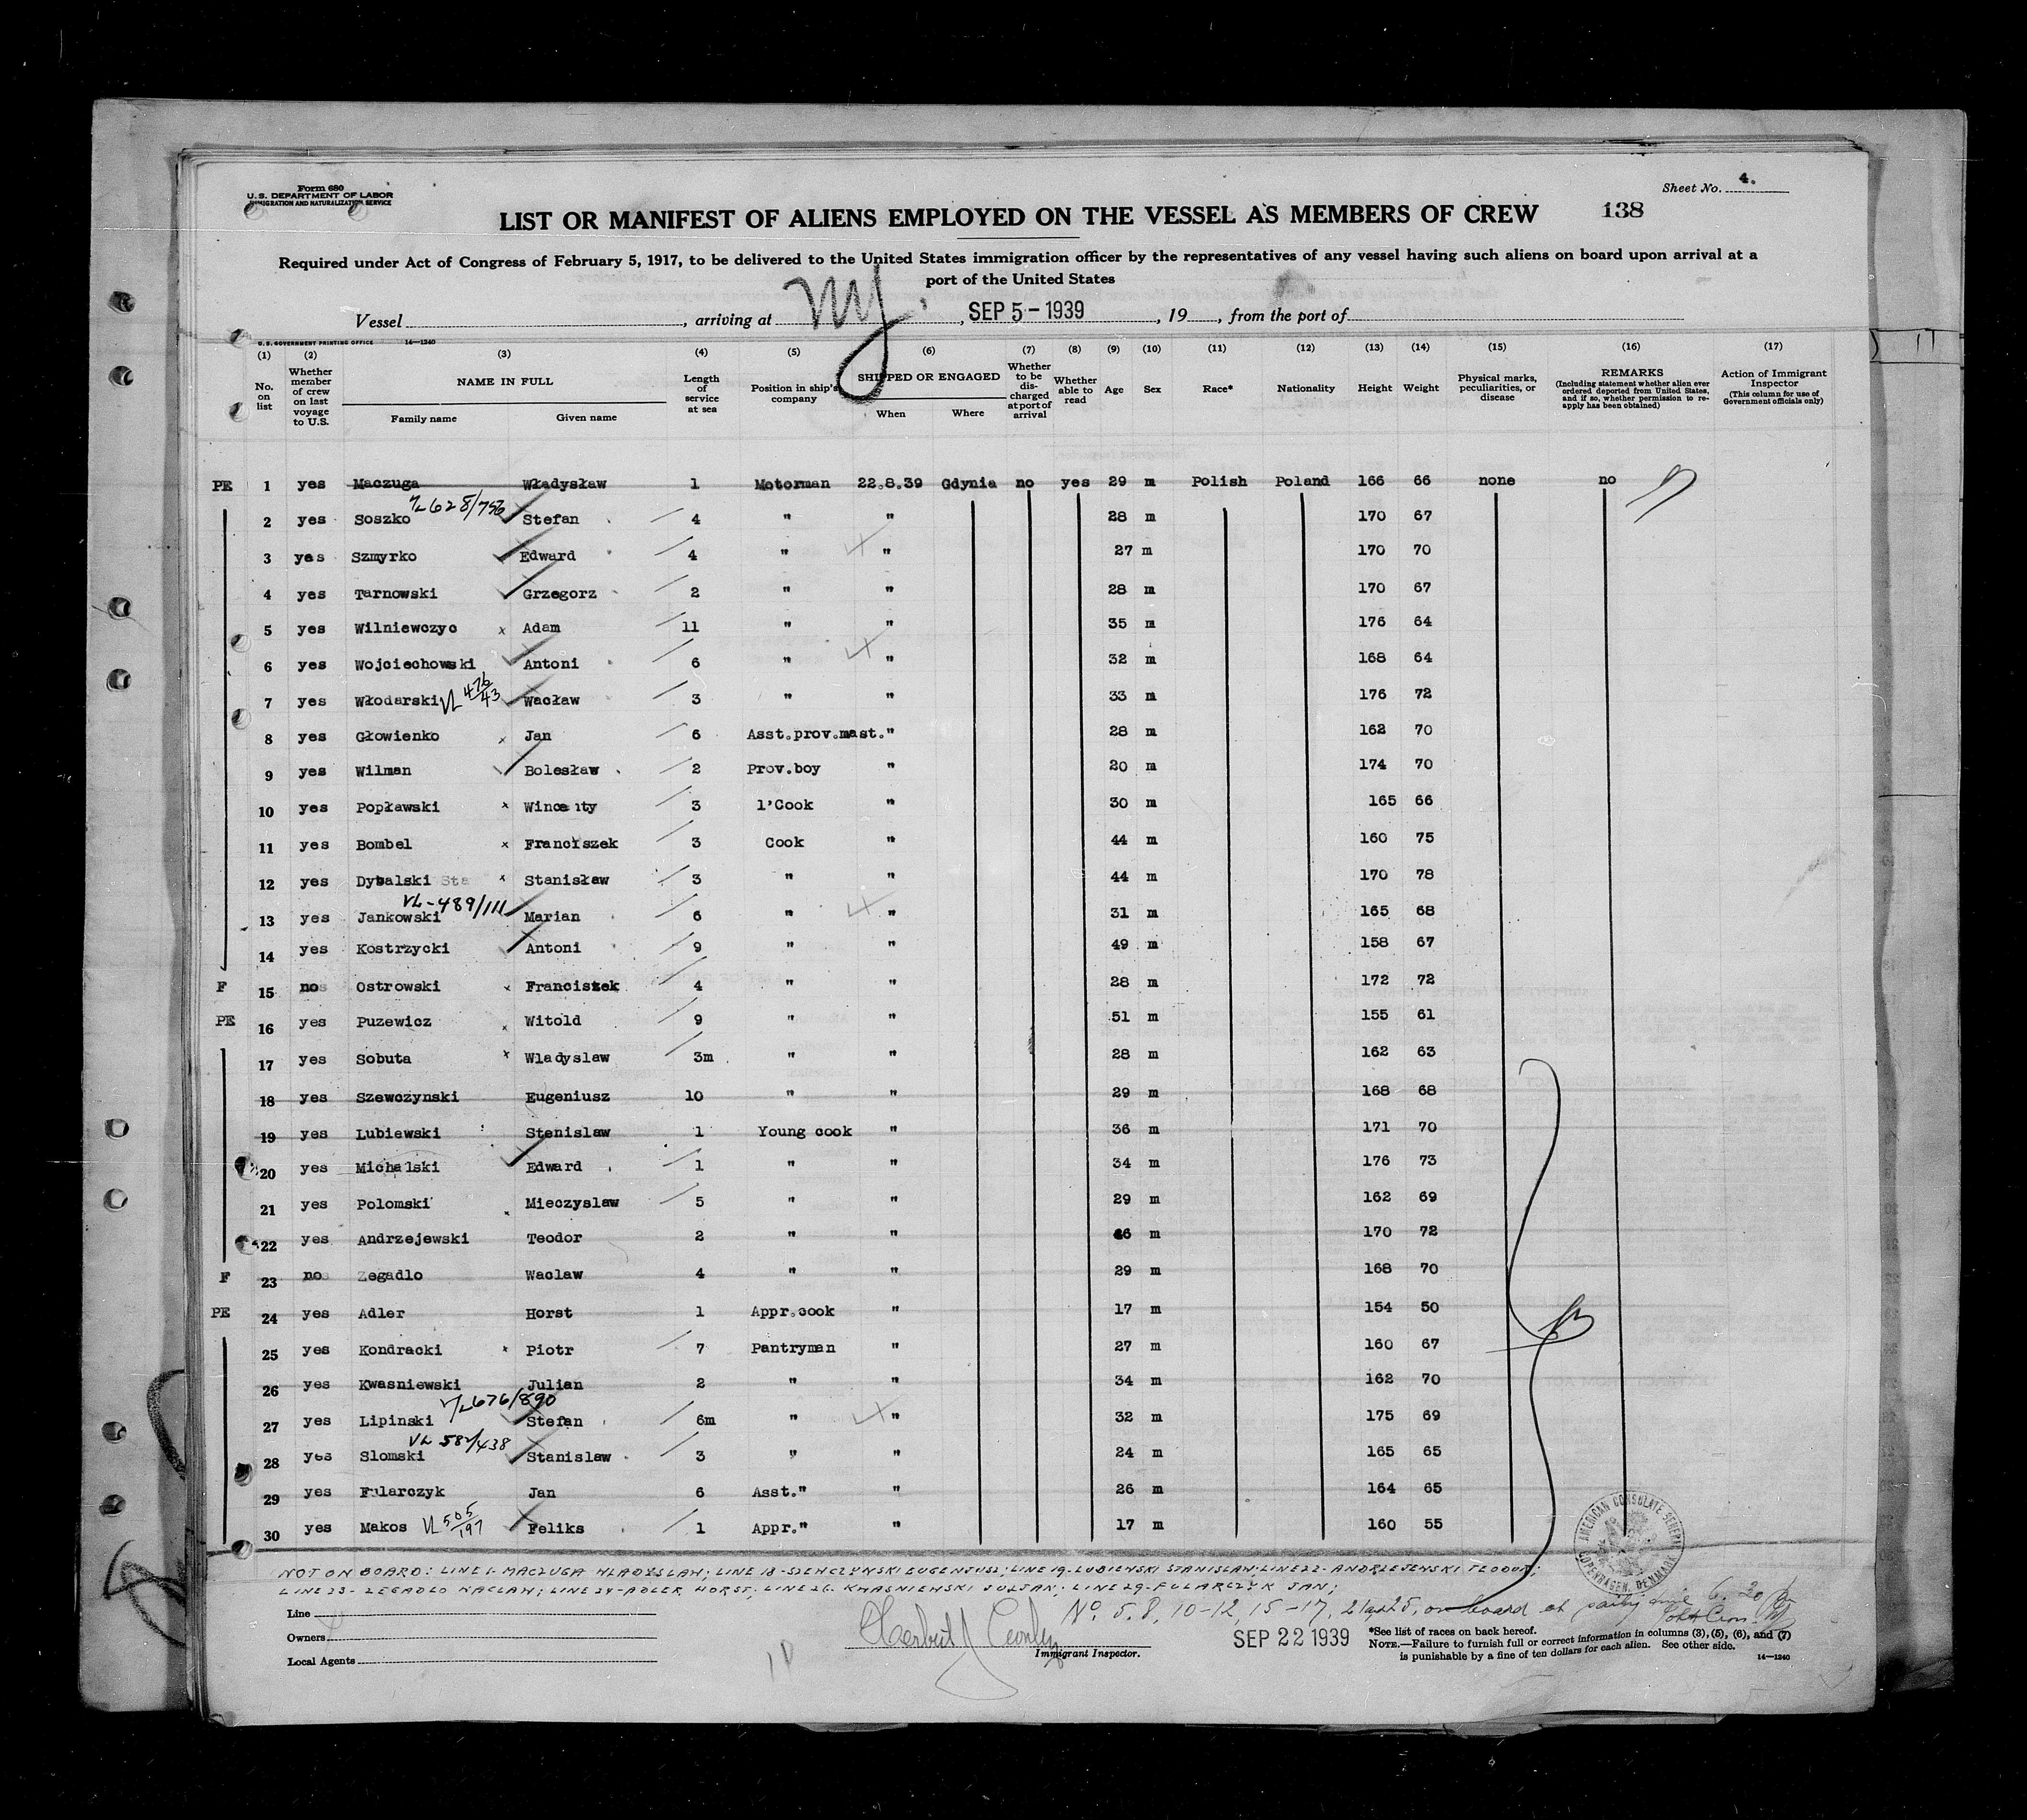 Form 680
U.S. DEPARTMENT OF LABOR
IMMIGRATION AND NATURALIZATION SERVICE
Sheet No. 4.
LIST OR MANIFEST OF ALIENS EMPLOYED ON THE VESSEL AS MEMBERS OF CREW 138
Required under Act of Congress of February 5, 1917, to be delivered to the United States immigration officer by the representatives of any vessel having such aliens on board upon arrival at a
port of the United States
Vessel , arriving at NY. , SEP 5 - 1939 , 19 , from the port of
U.S. GOVERNMENT PRINTING OFFICE 14—1240
(1) (2) (3) (4) (5) (6) (7) (8) (9) (10) (11) (12) (13) (14) (15) (16) (17)
No. on list Whether member of crew on last voyage to U.S. NAME IN FULL Family name Given name Length of service at sea Position in ship's company SHIPPED OR ENGAGED When Where Whether to be discharged at port of arrival Whether able to read Age Sex Race* Nationality Height Weight Physical marks, peculiarities, or disease REMARKS (Including statement whether alien ever ordered deported from United States, and if so, whether permission to reapply has been obtained) Action of Immigrant Inspector (This column for use of Government officials only)
PE 1 yes Maczuga Władysław 1 Motorman 22.8.39 Gdynia no yes 29 m Polish Poland 166 66 none no
VL 628/756
2 yes Soszko Stefan 4 " " 28 m 170 67
3 yes Szmyrko Edward 4 " " 27 m 170 70
4 yes Tarnowski Grzegorz 2 " " 28 m 170 67
5 yes Wilniewczyc x Adam 11 " " 35 m 176 64
6 yes Wojciechowski Antoni 6 " " 32 m 168 64
7 yes Włodarski VL 476/43 Wacław 3 " " 33 m 176 72
8 yes Głowienko x Jan 6 Asst.prov.mast. " 28 m 162 70
9 yes Wilman Bolesław 2 Prov.boy " 20 m 174 70
10 yes Popławski x Wincenty 3 1'Cook " 30 m 165 66
11 yes Bombel x Franciszek 3 Cook " 44 m 160 75
12 yes Dybalski x Stanisław 3 " " 44 m 170 78
VL-489/111
13 yes Jankowski Marian 6 " " 31 m 165 68
14 yes Kostrzycki Antoni 9 " " 49 m 158 67
F 15 no Ostrowski x Franciszek 4 " " 28 m 172 72
PE 16 yes Puzewicz x Witold 9 " " 51 m 155 61
17 yes Sobuta x Wladyslaw 3m " " 28 m 162 63
18 yes Szewczynski Eugeniusz 10 " " 29 m 168 68
19 yes Lubiewski Stenislaw 1 Young cook " 36 m 171 70
20 yes Michalski Edward 1 " " 34 m 176 73
21 yes Polomski Mieczyslaw 5 " " 29 m 162 69
22 yes Andrzejewski Teodor 2 " " 6 m 170 72
F 23 no Zegadlo Waclaw 4 " " 29 m 168 70
PE 24 yes Adler Horst 1 Appr.cook " 17 m 154 50
25 yes Kondracki x Piotr 7 Pantryman " 27 m 160 67
26 yes Kwasniewski Julian 2 " " 34 m 162 70
VL 676/890
27 yes Lipinski Stefan 6m " " 32 m 175 69
VL 582/438
28 yes Slomski Stanislaw 3 " " 24 m 165 65
29 yes Fularczyk Jan 6 Asst." " 26 m 164 65
30 yes Makos VL 505/197 Feliks 1 Appr." " 17 m 160 55
AMERICAN CONSULATE GENERAL COPENHAGEN, DENMARK
NOT ON BOARD: LINE 1- MACZUGA WLADYSLAW; LINE 18-SZEWCZYNSKI EUGENJUSZ; LINE 19-LUBIEWSKI STANISLAW. LINE 22-ANDRZEJEWSKI TEODOR;
LINE 23- ZEGADLO WACLAW; LINE 24-ADLER HORST; LINE 26- KWASNIEWSKI JULJAN; LINE 29-FULARCZYK JAN;
No. 5. 8, 10-12, 15-17, 21 25, on board at
Line
Owners
Local Agents
Immigrant Inspector.
SEP 22 1939
*See list of races on back hereof.
NOTE.—Failure to furnish full or correct information in columns (3), (5), (6), and (7)
is punishable by a fine of ten dollars for each alien. See other side.
14—1240